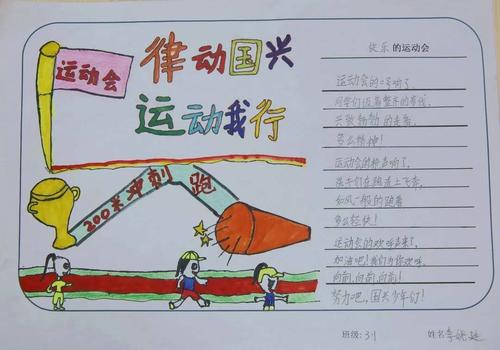 运动会
律动国兴
运动我行
200米冲刺跑
快乐的运动会
运动会的号响了，
同学们迈着整齐的步伐，
兴致勃勃的走着，
多么精神！
运动会的枪声响了，
选手们在跑道上飞奔，
如风一般的跑着
多么轻快！
运动会的欢呼声来了，
加油吧！我们为你欢呼，
向前，向前，向前！
努力吧，国兴少年们！
班级：31 姓名：李